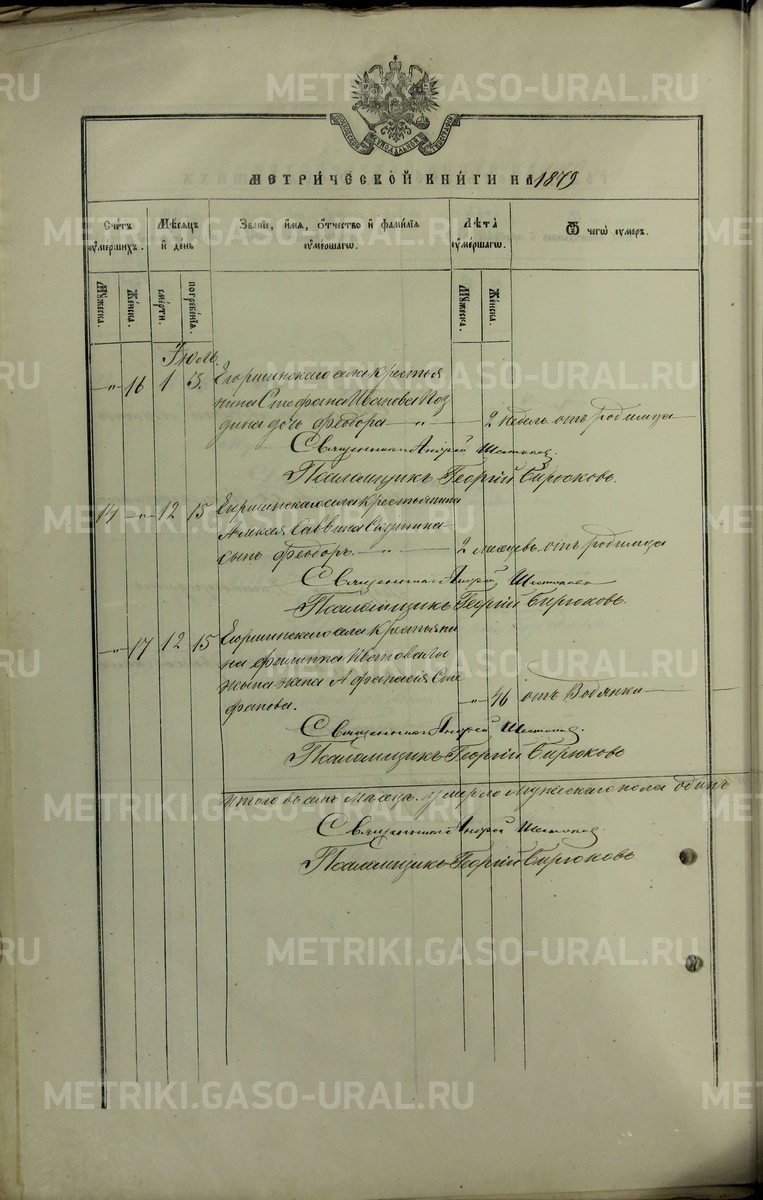 METRIKI.GASO-URAL.RU
МЕТРИ́ЧЕСКОЙ КНИ́ГИ НА 1879
Сче́тъ ᲂумéршихъ.
Мѣ́сяцъ и де́нь
Зва́нїе, и́мя, ѻ́тчество и фами́лїя ᲂумéршагѡ.
Лѣ́та ᲂумéршагѡ.
Ѿ чегѡ̀ ᲂу́меръ.
Мꙋ́жеска.
Же́нска.
сме́рти.
погребе́нїѧ.
Мꙋ́жеска.
Же́нска.
Іюль.
-"- 16 1 3. Егоршинскаго села Крестья
нина Стефана Иванова Поз
дина дочь Феодора -"- 2 недель. отъ Родимца
Священникъ Андрей
Псаломщикъ Георгій Бирюковъ.
14 -"- 12 15 Егоршинскаго села Крестьянина
Алексея Саввина
сынъ Феодоръ. -"- 2 месяцевъ. отъ Родимца
Священникъ Андрей
Псаломщикъ Георгій Бирюковъ.
-"- 17 12 15 Егоршинскаго села Крестьяни
на Филиппа
жена Афанасія Сте
фанова. " 46 отъ Водянки
Священникъ Андрей
Псаломщикъ Георгій Бирюковъ
Итого въ семъ месяце. умерло мужескаго пола одинъ
Священникъ Андрей
Псаломщикъ Георгій Бирюковъ